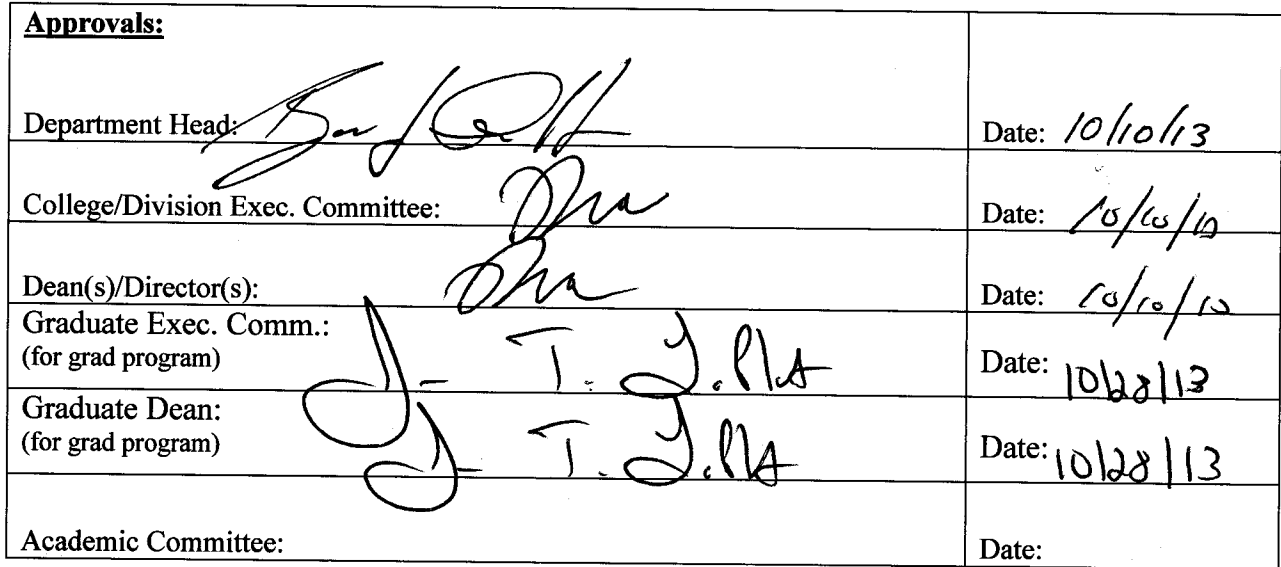 Approvals:
Department Head:
Date: 10/10/13
College/Division Exec. Committee:
Date: 10/10/13
Dean(s)/Director(s):
Date: 10/10/13
Graduate Exec. Comm.:
(for grad program)
Date: 10/28/13
Graduate Dean:
(for grad program)
Date: 10/28/13
Academic Committee:
Date: